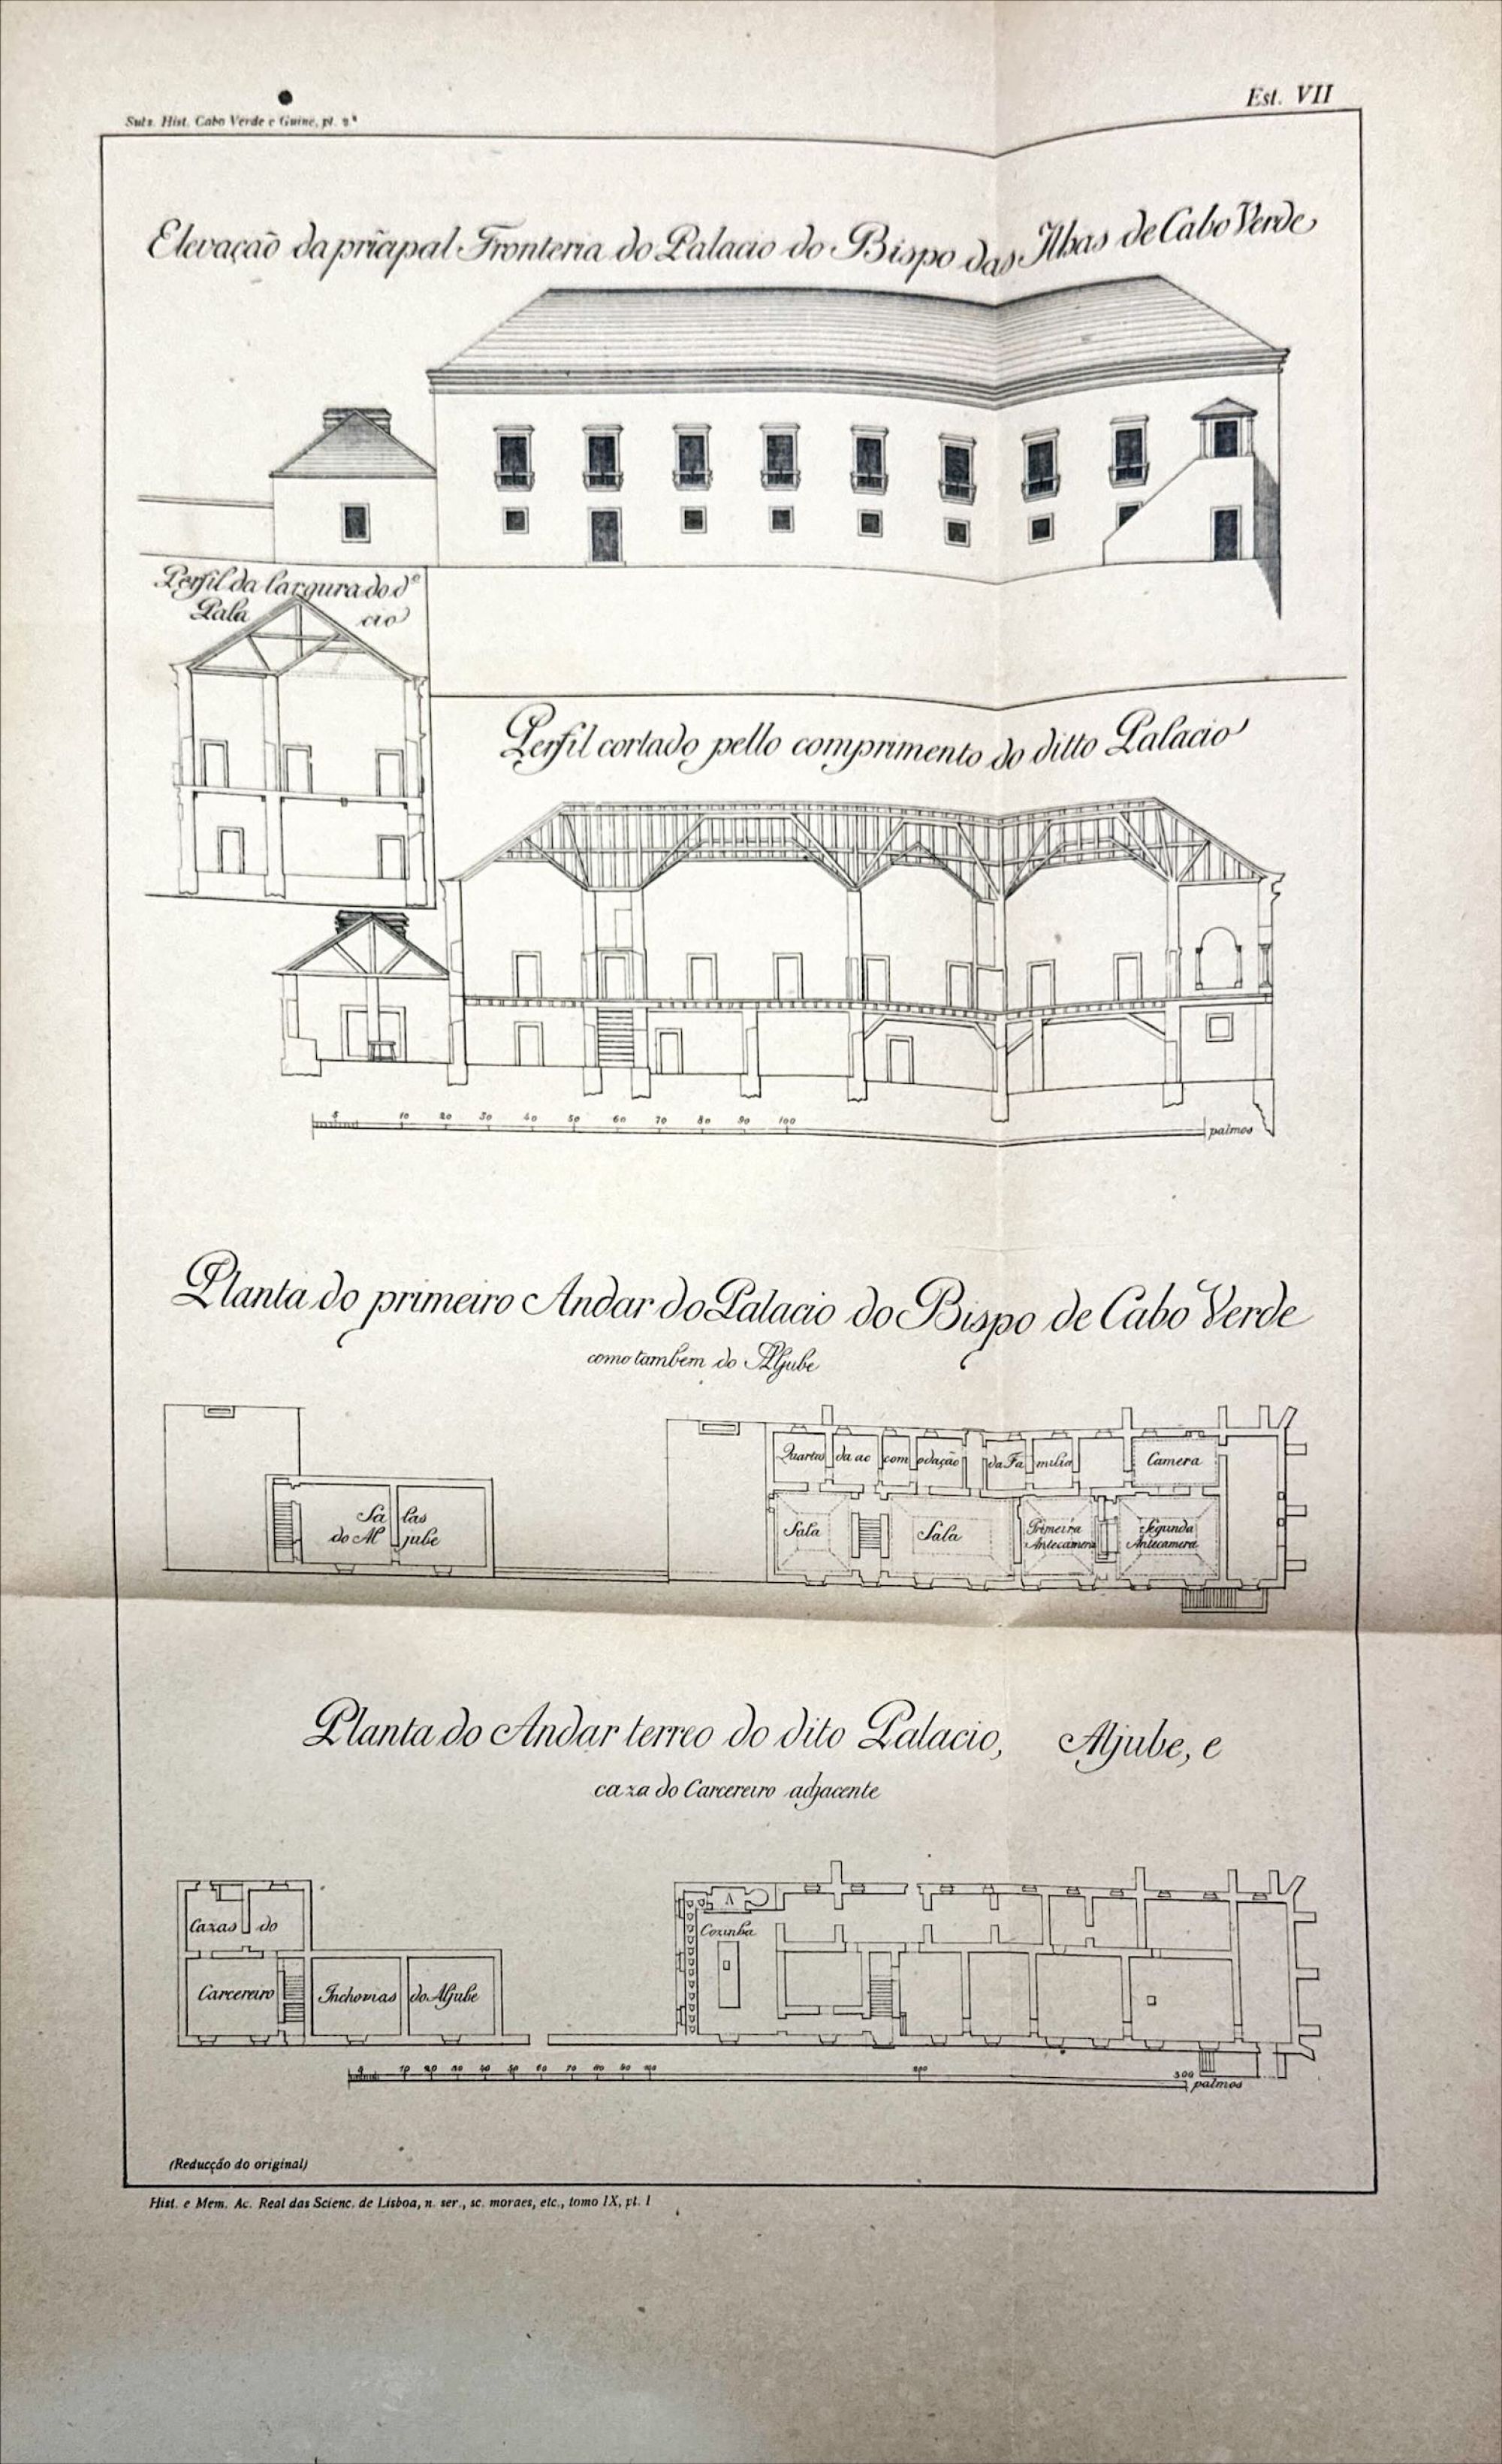 Est. VII
Subs. Hist. Cabo Verde e Guiné, pt. 2.ª
Elevação da prĩapal Fronteria do Palacio do Bispo das Ilhas de Cabo Verde
Perfil da largura do dº
Pala cio
Perfil cortado pello comprimento do ditto Palacio
5 10 20 30 40 50 60 70 80 90 100 palmos
Planta do primeiro Andar do Palacio do Bispo de Cabo Verde
como tambem do Aljube
Quartos da ac com odação da Fa milia Camera
Sa las
do Al jube
Sala Sala Primeira Antecamera Segunda Antecamera
Planta do Andar terreo do dito Palacio, Aljube, e
caza do Carcereiro adjacente
A
Cazas do
Cozinha
Carcereiro Inchovias do Aljube
10 20 30 40 50 60 70 80 90 100 200 300
palmos
(Reducção do original)
Hist. e Mem. Ac. Real das Scienc. de Lisboa, n. ser., sc. moraes, etc., tomo IX, pt. I